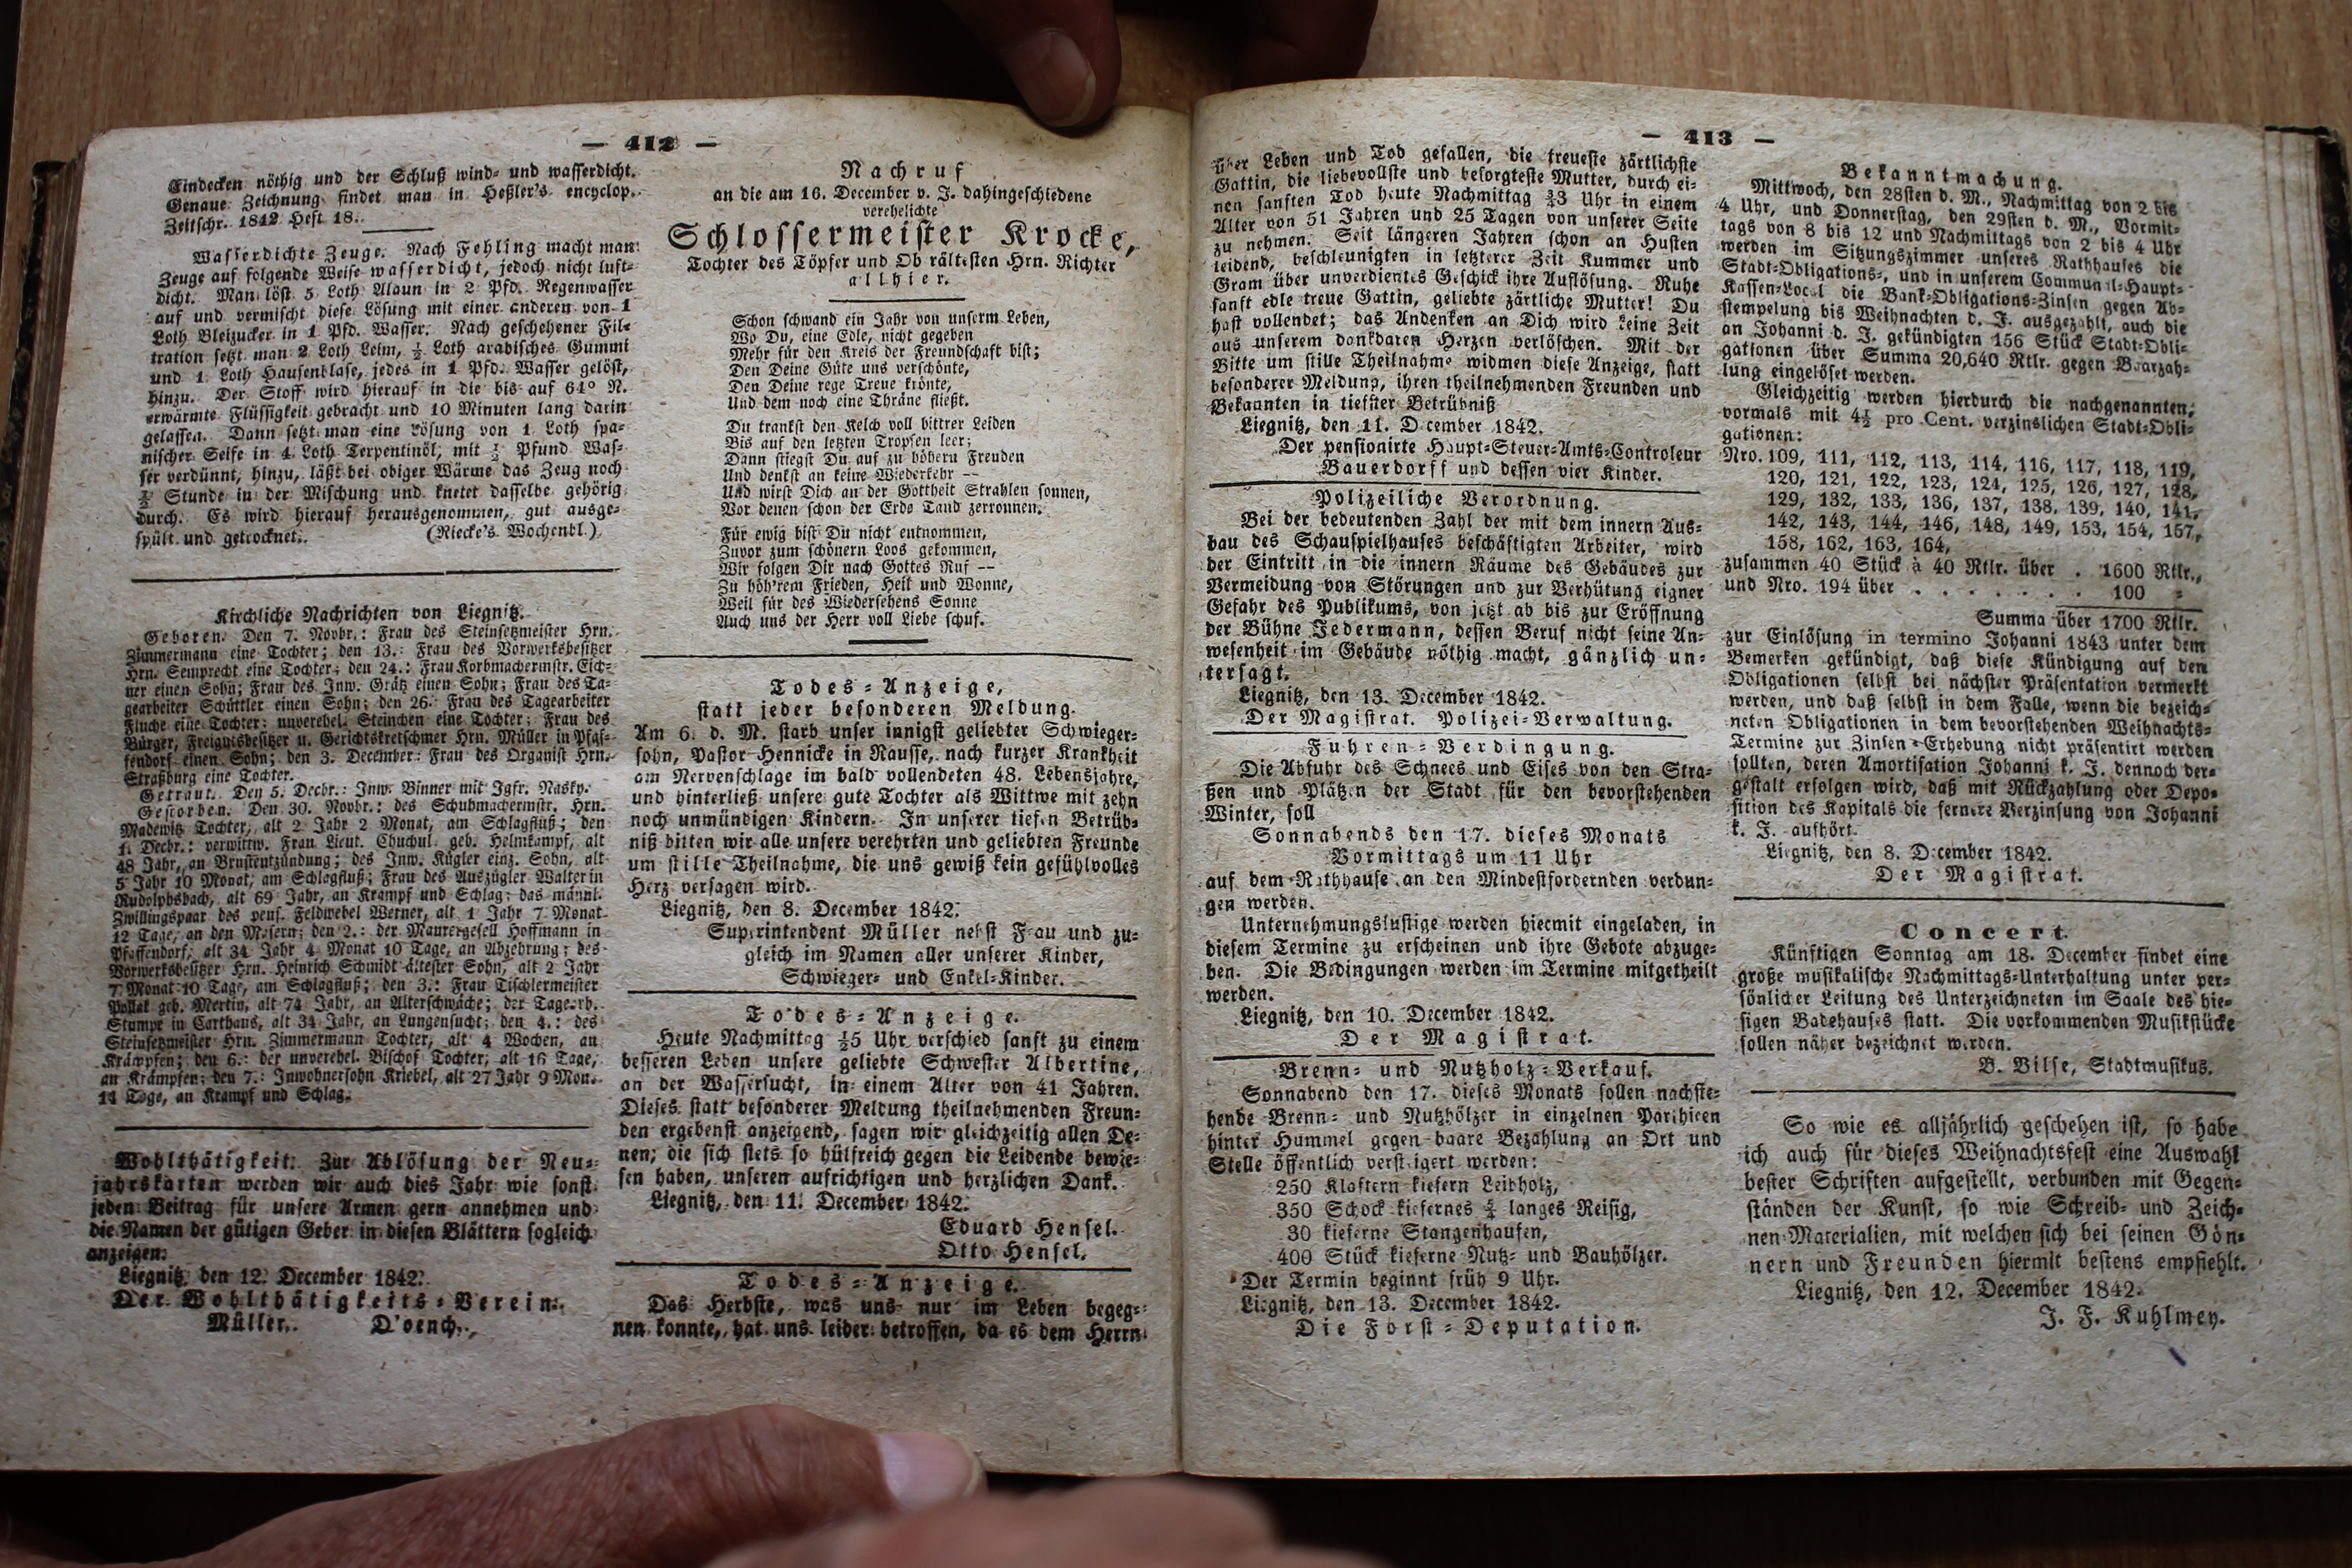 — 412 —
Eindecken nöthig und der Schluß wind- und wasserdicht.
Genaue Zeichnung findet man in Heßler's encyclop.
Zeitschr. 1842 Heft 18.
Wasserdichte Zeuge. Nach Fehling macht man
Zeuge auf folgende Weise wasserdicht, jedoch nicht luft-
dicht. Man löst 5 Loth Alaun in 2 Pfd. Regenwasser
auf und vermischt diese Lösung mit einer anderen von 1
Loth Bleizucker in 1 Pfd. Wasser. Nach geschehener Fil-
tration setzt man 2 Loth Leim, ½ Loth arabisches Gummi
und 1 Loth Hausenblase, jedes in 1 Pfd. Wasser gelöst,
hinzu. Der Stoff wird hierauf in die bis auf 64° R.
erwärmte Flüssigkeit gebracht und 10 Minuten lang darin
gelassen. Dann setzt man eine Lösung von 1 Loth spa-
nischer Seife in 4 Loth Terpentinöl, mit ½ Pfund Was-
ser verdünnt, hinzu, läßt bei obiger Wärme das Zeug noch
Stunde in der Mischung und knetet dasselbe gehörig
durch. Es wird hierauf herausgenommen, gut ausge-
spült und getrocknet. (Riecke's Wochenbl.)
Kirchliche Nachrichten von Liegnitz.
Geboren. Den 7. Novbr.: Frau des Steinsetzmeister Hrn.
Zimmermann eine Tochter; den 13.: Frau des Vorwerksbesitzer
Hrn. Semprecht eine Tochter; den 24.: Frau Korbmachermstr. Eich-
ner einen Sohn; Frau des Inw. Grätz einen Sohn; Frau des Ta-
gearbeiter Schüttler einen Sohn; den 26. Frau des Tagearbeiter
Fluche eine Tochter; unverehel. Steinchen eine Tochter; Frau des
Bürger, Freigutsbesitzer u. Gerichtskretschmer Hrn. Müller in Pfaf-
fendorf einen Sohn; den 3. December: Frau des Organist Hrn.
Straßburg eine Tochter.
Getraut. Den 5. Decbr.: Inw. Binner mit Igfr. Rasky.
Gestorben. Den 30. Novbr.: des Schuhmachermstr. Hrn.
Madewitz Tochter, alt 2 Jahr 2 Monat, am Schlagfluß; den
1. Decbr.: verwittw. Frau Lieut. Chuchul geb. Helmkampf, alt
48 Jahr, an Brustentzündung; des Inw. Kügler einz. Sohn, alt
5 Jahr 10 Monat, am Schlagfluß; Frau des Auszügler Walter in
Rudolphsbach, alt 69 Jahr, an Krampf und Schlag; das männl.
Zwillingspaar des pens. Feldwebel Werner, alt 1 Jahr 7 Monat
12 Tage, an den Masern; den 2.: der Maurergesell Hoffmann in
Pfaffendorf, alt 34 Jahr 4 Monat 10 Tage, an Abzehrung; des
Vorwerksbesitzer Hrn. Heinrich Schmidt ältester Sohn, alt 2 Jahr
7 Monat 10 Tage, am Schlagfluß; den 3.: Frau Tischlermeister
Pollak geb. Mertin, alt 74 Jahr, an Alterschwäche; der Tagearb.
Stumpe in Carthaus, alt 34 Jahr, an Lungensucht; den 4.: des
Steinsetzmeister Hrn. Zimmermann Tochter, alt 4 Wochen, an
Krämpfen; den 6.: der unverehel. Bischof Tochter, alt 16 Tage,
an Krämpfen; den 7.: Inwohnersohn Kriebel, alt 27 Jahr 9 Mon.
14 Tage, an Krampf und Schlag.
Wohlthätigkeit. Zur Ablösung der Neu-
jahrskarten werden wir auch dies Jahr wie sonst
jeden Beitrag für unsere Armen gern annehmen und
die Namen der gütigen Geber in diesen Blättern sogleich
anzeigen.
Liegnitz den 12. December 1842.
Der Wohlthätigkeits-Verein.
Müller. D'oench.
Nachruf
an die am 16. December v. J. dahingeschiedene
verehelichte
Schlossermeister Krocke,
Tochter des Töpfer und Ob rältesten Hrn. Richter
allhier.
Schon schwand ein Jahr von unserm Leben,
Wo Du, eine Edle, nicht gegeben
Mehr für den Kreis der Freundschaft bist;
Den Deine Güte uns verschönte,
Den Deine rege Treue krönte,
Und dem noch eine Thräne fließt.
Du trankst den Kelch voll bittrer Leiden
Bis auf den letzten Tropfen leer;
Dann stiegst Du auf zu höhern Freuden
Und denkst an keine Wiederkehr —
Und wirst Dich an der Gottheit Strahlen sonnen,
Vor denen schon der Erde Tand zerronnen.
Für ewig bist Du nicht entnommen,
Zuvor zum schönern Loos gekommen,
Wir folgen Dir nach Gottes Ruf —
Zu höh'rem Frieden, Heil und Wonne,
Weil für des Wiedersehens Sonne
Auch uns der Herr voll Liebe schuf.
Todes-Anzeige,
statt jeder besonderen Meldung.
Am 6. d. M. starb unser innigst geliebter Schwieger-
sohn, Pastor Hennicke in Rausse, nach kurzer Krankheit
am Nervenschlage im bald vollendeten 48. Lebensjahre,
und hinterließ unsere gute Tochter als Wittwe mit zehn
noch unmündigen Kindern. In unserer tiefen Betrüb-
niß bitten wir alle unsere verehrten und geliebten Freunde
um stille Theilnahme, die uns gewiß kein gefühlvolles
Herz versagen wird.
Liegnitz, den 8. December 1842.
Superintendent Müller nebst Frau und zu-
gleich im Namen aller unserer Kinder,
Schwieger- und Enkel-Kinder.
Todes-Anzeige.
Heute Nachmittag ½5 Uhr verschied sanft zu einem
besseren Leben unsere geliebte Schwester Albertine,
an der Wassersucht, in einem Alter von 41 Jahren.
Dieses statt besonderer Meldung theilnehmenden Freun-
den ergebenst anzeigend, sagen wir gleichzeitig allen De-
nen, die sich stets so hülfreich gegen die Leidende bewie-
sen haben, unseren aufrichtigen und herzlichen Dank.
Liegnitz, den 11. December 1842.
Eduard Hensel.
Otto Hensel.
Todes-Anzeige.
Das Herbste, was uns nur im Leben begeg-
nen konnte, hat uns leider betroffen, da es dem Herrn
— 413 —
über Leben und Tod gefallen, die treueste zärtlichste
Gattin, die liebevollste und besorgteste Mutter, durch ei-
nen sanften Tod heute Nachmittag ¾3 Uhr in einem
Alter von 51 Jahren und 25 Tagen von unserer Seite
zu nehmen. Seit längeren Jahren schon an Husten
leidend, beschleunigten in letzterer Zeit Kummer und
Gram über unverdientes Geschick ihre Auflösung. Ruhe
sanft edle treue Gattin, geliebte zärtliche Mutter! Du
hast vollendet; das Andenken an Dich wird keine Zeit
aus unserem dankbaren Herzen verlöschen. Mit der
Bitte um stille Theilnahme widmen diese Anzeige, statt
besonderer Meldung, ihren theilnehmenden Freunden und
Bekannten in tiefster Betrübniß
Liegnitz, den 11. December 1842.
Der pensionirte Haupt-Steuer-Amts-Controleur
Bauerdorff und dessen vier Kinder.
Polizeiliche Verordnung.
Bei der bedeutenden Zahl der mit dem innern Aus-
bau des Schauspielhauses beschäftigten Arbeiter, wird
der Eintritt in die innern Räume des Gebäudes zur
Vermeidung von Störungen und zur Verhütung eigner
Gefahr des Publikums, von jetzt ab bis zur Eröffnung
der Bühne Jedermann, dessen Beruf nicht seine An-
wesenheit im Gebäude nöthig macht, gänzlich un-
tersagt.
Liegnitz, den 13. December 1842.
Der Magistrat. Polizei-Verwaltung.
Fuhren-Verdingung.
Die Abfuhr des Schnees und Eises von den Stra-
ßen und Plätzen der Stadt für den bevorstehenden
Winter, soll
Sonnabends den 17. dieses Monats
Vormittags um 11 Uhr
auf dem Rathhause an den Mindestfordernden verdun-
gen werden.
Unternehmungslustige werden hiermit eingeladen, in
diesem Termine zu erscheinen und ihre Gebote abzuge-
ben. Die Bedingungen werden im Termine mitgetheilt
werden.
Liegnitz, den 10. December 1842.
Der Magistrat.
Brenn- und Nutzholz-Verkauf.
Sonnabend den 17. dieses Monats sollen nachste-
hende Brenn- und Nutzhölzer in einzelnen Parthieen
hinter Hummel gegen baare Bezahlung an Ort und
Stelle öffentlich versteigert werden:
250 Klaftern kiefern Leibholz,
350 Schock kiefernes langes Reisig,
30 kieferne Stangenhaufen,
400 Stück kieferne Nutz- und Bauhölzer.
Der Termin beginnt früh 9 Uhr.
Liegnitz, den 13. December 1842.
Die Forst-Deputation.
Bekanntmachung.
Mittwoch, den 28sten d. M., Nachmittag von 2 bis
4 Uhr, und Donnerstag, den 29sten d. M., Vormit-
tags von 8 bis 12 und Nachmittags von 2 bis 4 Uhr
werden im Sitzungszimmer unseres Rathhauses die
Stadt-Obligations-, und in unserem Communal-Haupt-
Kassen-Local die Bank-Obligations-Zinsen gegen Ab-
stempelung bis Weihnachten d. J. ausgezahlt, auch die
an Johanni d. J. gekündigten 156 Stück Stadt-Obli-
gationen über Summa 20,640 Rtlr. gegen Baarzah-
lung eingelöset werden.
Gleichzeitig werden hierdurch die nachgenannten,
vormals mit 4½ pro Cent. verzinslichen Stadt-Obli-
gationen:
Nro. 109, 111, 112, 113, 114, 116, 117, 118, 119,
120, 121, 122, 123, 124, 125, 126, 127, 128,
129, 132, 133, 136, 137, 138, 139, 140, 141,
142, 143, 144, 146, 148, 149, 153, 154, 157,
158, 162, 163, 164,
zusammen 40 Stück à 40 Rtlr. über . 1600 Rtlr.,
und Nro. 194 über . . . . . . . 100 =
Summa über 1700 Rtlr.
zur Einlösung in termino Johanni 1843 unter dem
Bemerken gekündigt, daß diese Kündigung auf den
Obligationen selbst bei nächster Präsentation vermerkt
werden, und daß selbst in dem Falle, wenn die bezeich-
neten Obligationen in dem bevorstehenden Weihnachts-
Termine zur Zinsen-Erhebung nicht präsentirt werden
sollten, deren Amortisation Johanni k. J. dennoch der-
gestalt erfolgen wird, daß mit Rückzahlung oder Depo-
sition des Kapitals die fernere Verzinsung von Johanni
k. J. aufhört.
Liegnitz, den 8. December 1842.
Der Magistrat.
Concert.
Künftigen Sonntag am 18. December findet eine
große musikalische Nachmittags-Unterhaltung unter per-
sönlicher Leitung des Unterzeichneten im Saale des hie-
sigen Badehauses statt. Die vorkommenden Musikstücke
sollen näher bezeichnet werden.
B. Bilse, Stadtmusikus.
So wie es alljährlich geschehen ist, so habe
ich auch für dieses Weihnachtsfest eine Auswahl
bester Schriften aufgestellt, verbunden mit Gegen-
ständen der Kunst, so wie Schreib- und Zeich-
nen-Materialien, mit welchen sich bei seinen Gön-
nern und Freunden hiermit bestens empfiehlt.
Liegnitz, den 12. December 1842.
J. F. Kuhlmey.